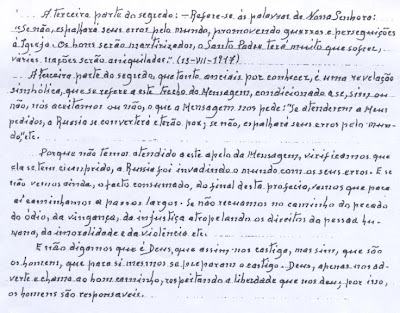 A terceira parte do segredo: - Refere-se às palavras de Nossa Senhora:
"Se não, espalhará seus erros pelo mundo, promovendo guerras e perseguições
à Igreja. Os bons serão martirizados, o Santo Padre terá muito que sofrer,
várias nações serão aniquiladas." (13-VII-1917)
A terceira parte do segredo, que tanto ansiais por conhecer, é uma revelação
simbólica, que se refere a este trecho da Mensagem, condicionada a se, sim ou
não, nós aceitamos ou não, o que a Mensagem nos pede: "Se atenderem a Meus
pedidos, a Russia se converterá e terão paz; se não, espalhará seus erros pelo mun-
do," etc.
Porque não temos atendido a este apelo da Mensagem, verificamos que
ela se tem cumprido, a Russia foi invadindo o mundo com os seus erros. E se
não vemos ainda, o facto consumado, do final desta profecia, vemos que para
aí caminhamos a passos largos. Se não recuarmos no caminho do pecado
do ódio, da vingança, da injustiça atropelando os direitos da pessoa hu-
mana, da imoralidade e da violência etc.
E não digamos que é Deus, que assim nos castiga, mas sim, que são
os homens, que para si mesmos se preparam o castigo. Deus, apenas nos ad-
verte e chama ao bom caminho, respeitando a liberdade que nos deu; por isso,
os homens são responsaveis.